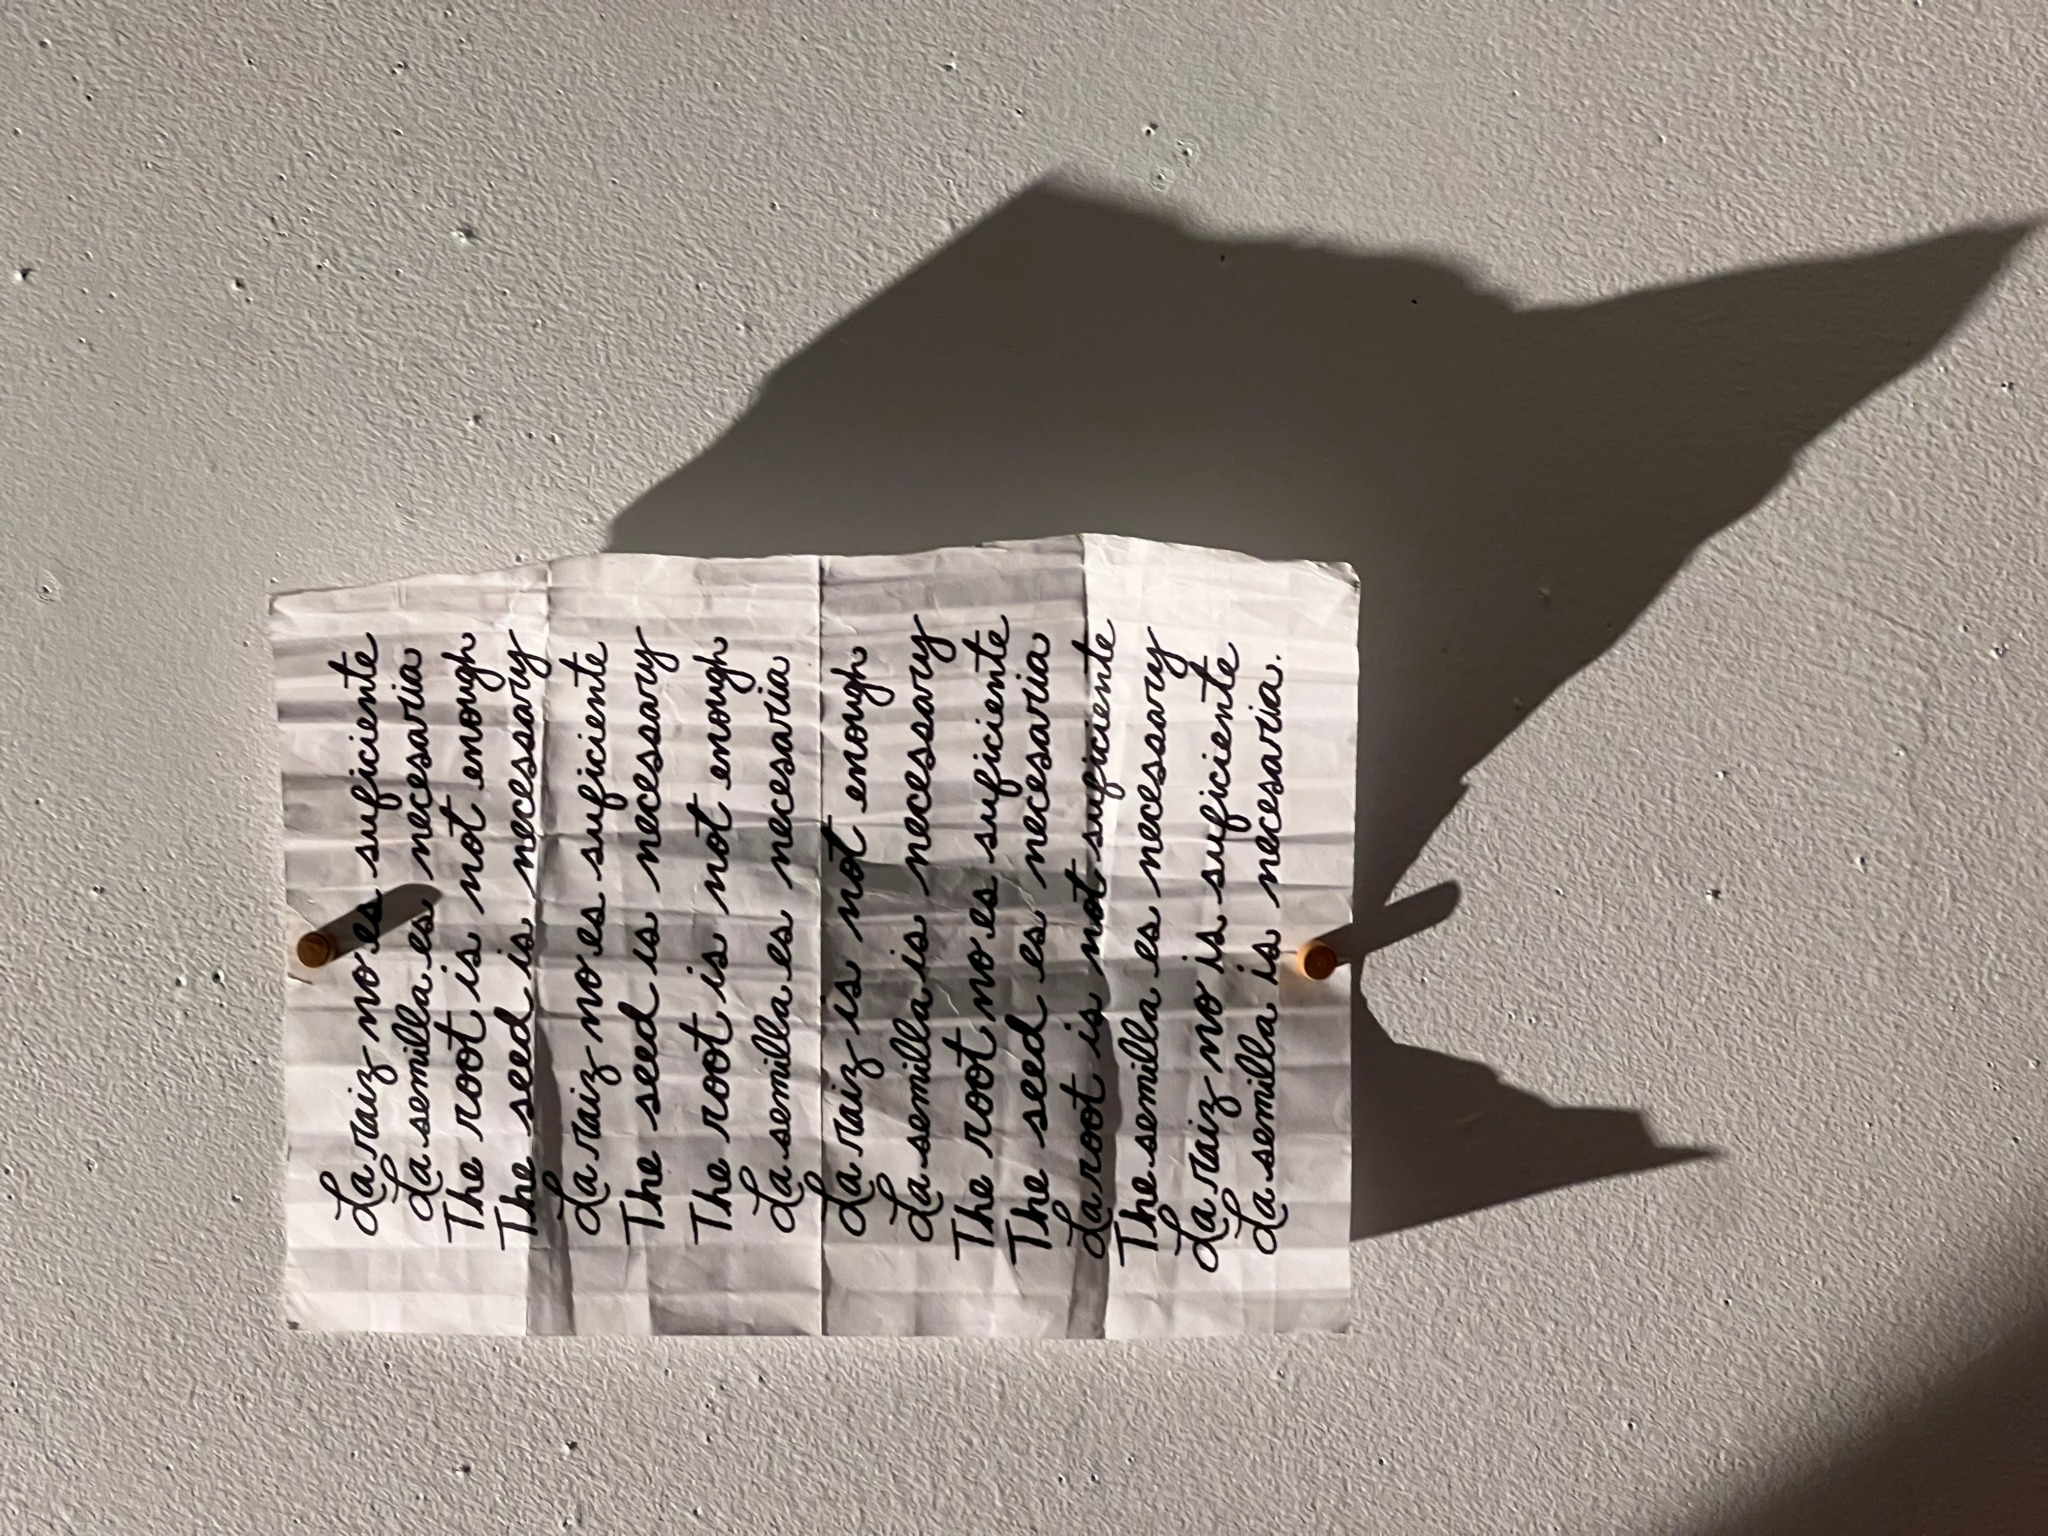 La raiz no es suficiente
La semilla es necesaria
The root is not enough
The seed is necessary
La raiz no es suficiente
The seed is necessary
The root is not enough
La semilla es necesaria
La raiz is not enough
La semilla is necessary
The root no es suficiente
The seed es necesaria
La root is not suficiente
The semilla es necessary
La raiz no is suficiente
La semilla is necesaria.